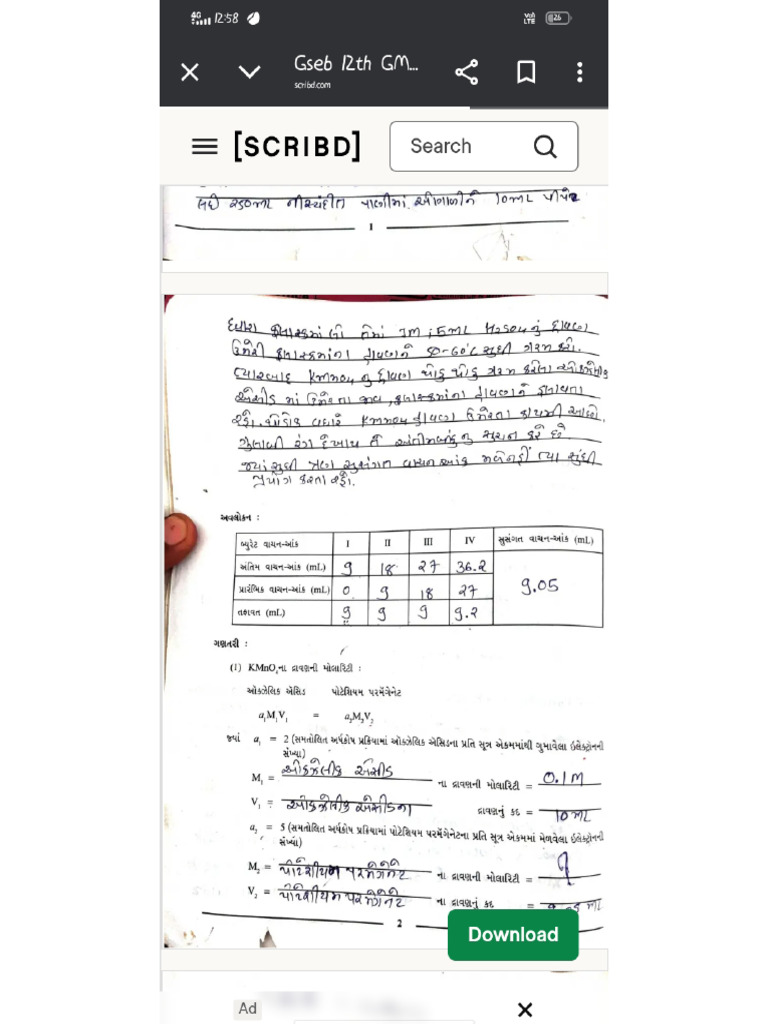 4G 12:58 Vo) LTE 26
Gseb 12th GM...
scribd.com
[SCRIBD] Search
લઈ ૨૫૦mL નીસ્યંદીત પાણીમાં ઓગાળીને 10mL પીપેટ
1
દ્વારા ફ્લાસ્કમાં લો તેમાં 1M, 5mL H2SO4નું દ્રાવણ
ઉમેરી ફ્લાસ્કમાંના દ્રાવણને 50-60°C સુધી ગરમ કરો.
ત્યારબાદ KMnO4નું દ્રાવણ થોડું થોડું ગરમ કરેલા ઓકઝેલિક
એસીડમાં ઉમેરતા જાવ, ફ્લાસ્કમાંના દ્રાવણને હલાવતા
રહો. થોડોક વધારે KMnO4 દ્રાવણ ઉમેરતા કાયમી આછો
ગુલાબી રંગ દેખાય તે અંતીમબિંદુનું સુચન કરે છે
જ્યાં સુધી ત્રણ સુસંગત વાચન આંક મળે નહીં ત્યા સુધી
પ્રયોગ કરતા રહો.
અવલોકન :
બ્યુરેટ વાચન-આંક I II III IV સુસંગત વાચન-આંક (mL)
અંતિમ વાચન-આંક (mL) 9 18 27 36.2
પ્રારંભિક વાચન-આંક (mL) 0 9 18 27 9.05
તફાવત (mL) 9 9 9 9.2
ગણતરી :
(1) KMnO₄ના દ્રાવણની મોલારિટી :
ઑક્ઝેલિક ઍસિડ પોટૅશિયમ પરમૅંગેનેટ
a₁M₁V₁ = a₂M₂V₂
જ્યાં a₁ = 2 (સમતોલિત અર્ધકોષ પ્રક્રિયામાં ઑક્ઝેલિક ઍસિડના પ્રતિ સૂત્ર એકમમાંથી ગુમાવેલા ઇલેક્ટ્રૉનની
સંખ્યા)
M₁ = ઓકઝેલીક એસીડ ના દ્રાવણની મોલારિટી = 0.1M
V₁ = ઓકઝેલીક એસીડના દ્રાવણનું કદ = 10 mL
a₂ = 5 (સમતોલિત અર્ધકોષ પ્રક્રિયામાં પોટૅશિયમ પરમૅંગેનેટના પ્રતિ સૂત્ર એકમમાં મેળવેલા ઇલેક્ટ્રૉનની
સંખ્યા)
M₂ = પોટેશીયમ પરમેંગેનેટ ના દ્રાવણની મોલારિટી = ?
V₂ = પોટેશીયમ પરમેંગેનેટ ના દ્રાવણનું કદ = mL
2
Download
Ad